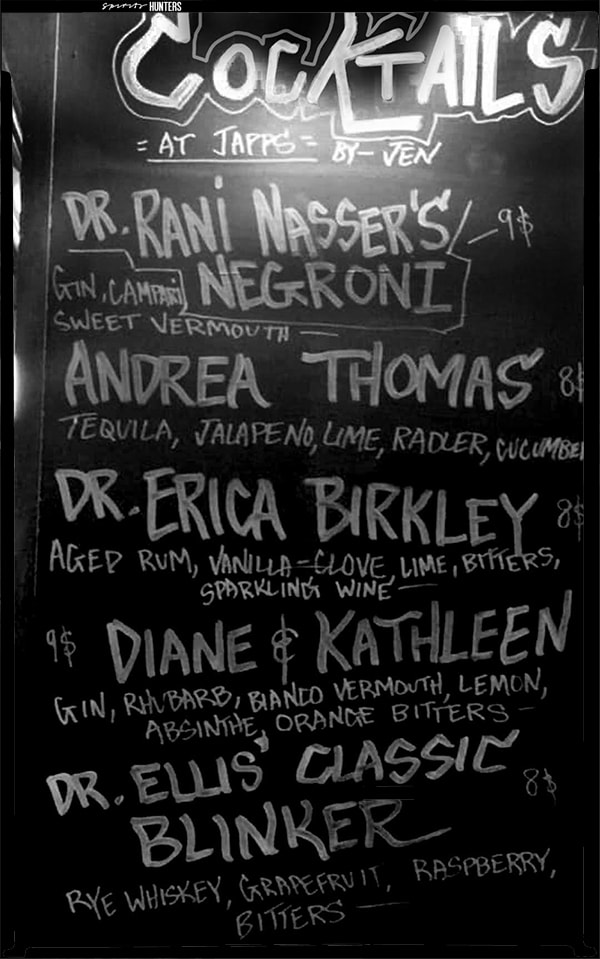 Spirits HUNTERS
COCKTAILS
= AT JAPPS = BY - JEN
DR. RANI NASSER'S - 9$
GIN, CAMPARI, NEGRONI
SWEET VERMOUTH -
ANDREA THOMAS 8$
TEQUILA, JALAPENO, LIME, RADLER, CUCUMBE
DR. ERICA BIRKLEY 8$
AGED RUM, VANILLA-CLOVE, LIME, BITTERS,
SPARKLING WINE -
9$ DIANE & KATHLEEN
GIN, RHUBARB, BIANCO VERMOUTH, LEMON,
ABSINTHE, ORANGE BITTERS -
DR. ELLIS' CLASSIC 8$
BLINKER
RYE WHISKEY, GRAPEFRUIT, RASPBERRY,
BITTERS -